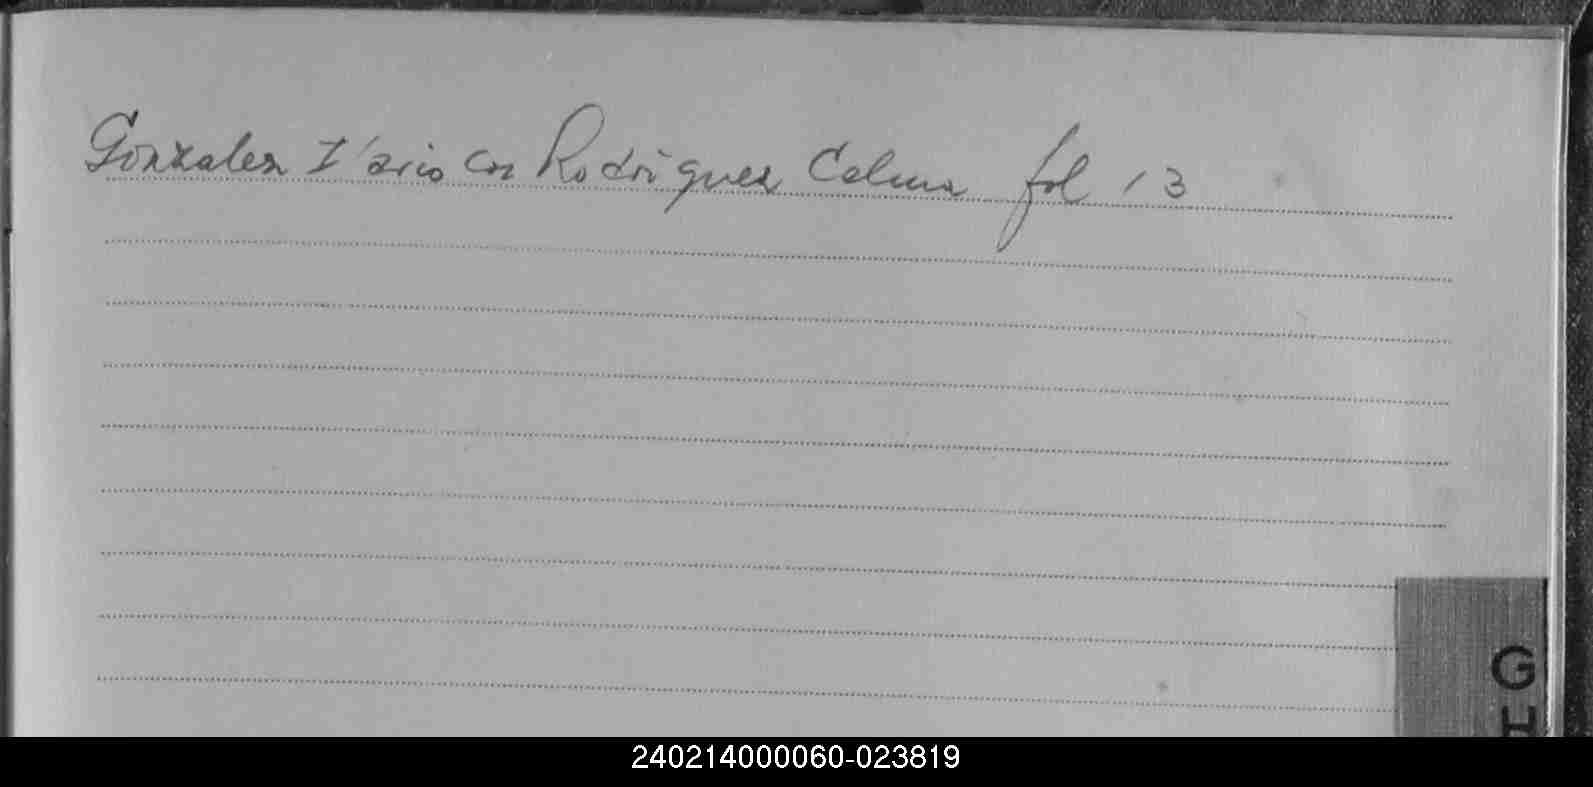 Gonzalez con Rodriguez Celma fol 13
G
240214000060-023819